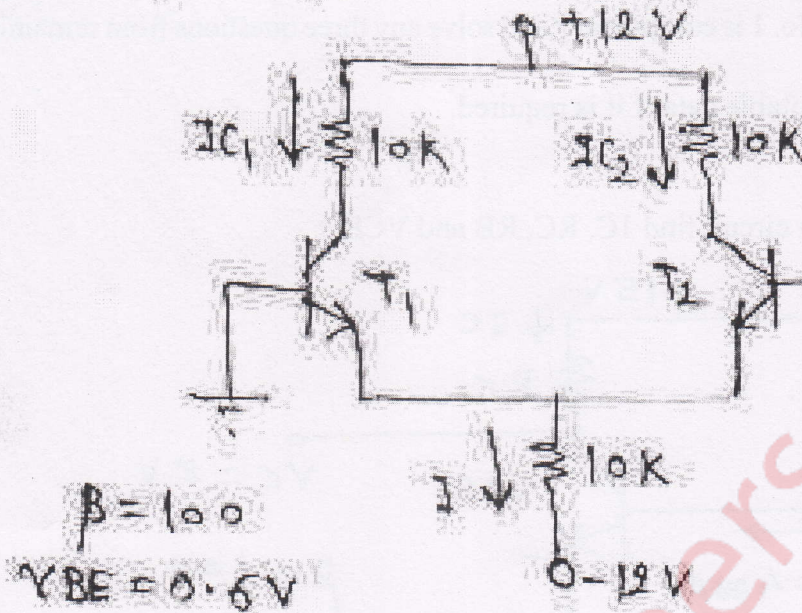 +12V
IC1 10K IC2 10K
T1 T2
I 10K
β = 100
VBE = 0.6V
-12V